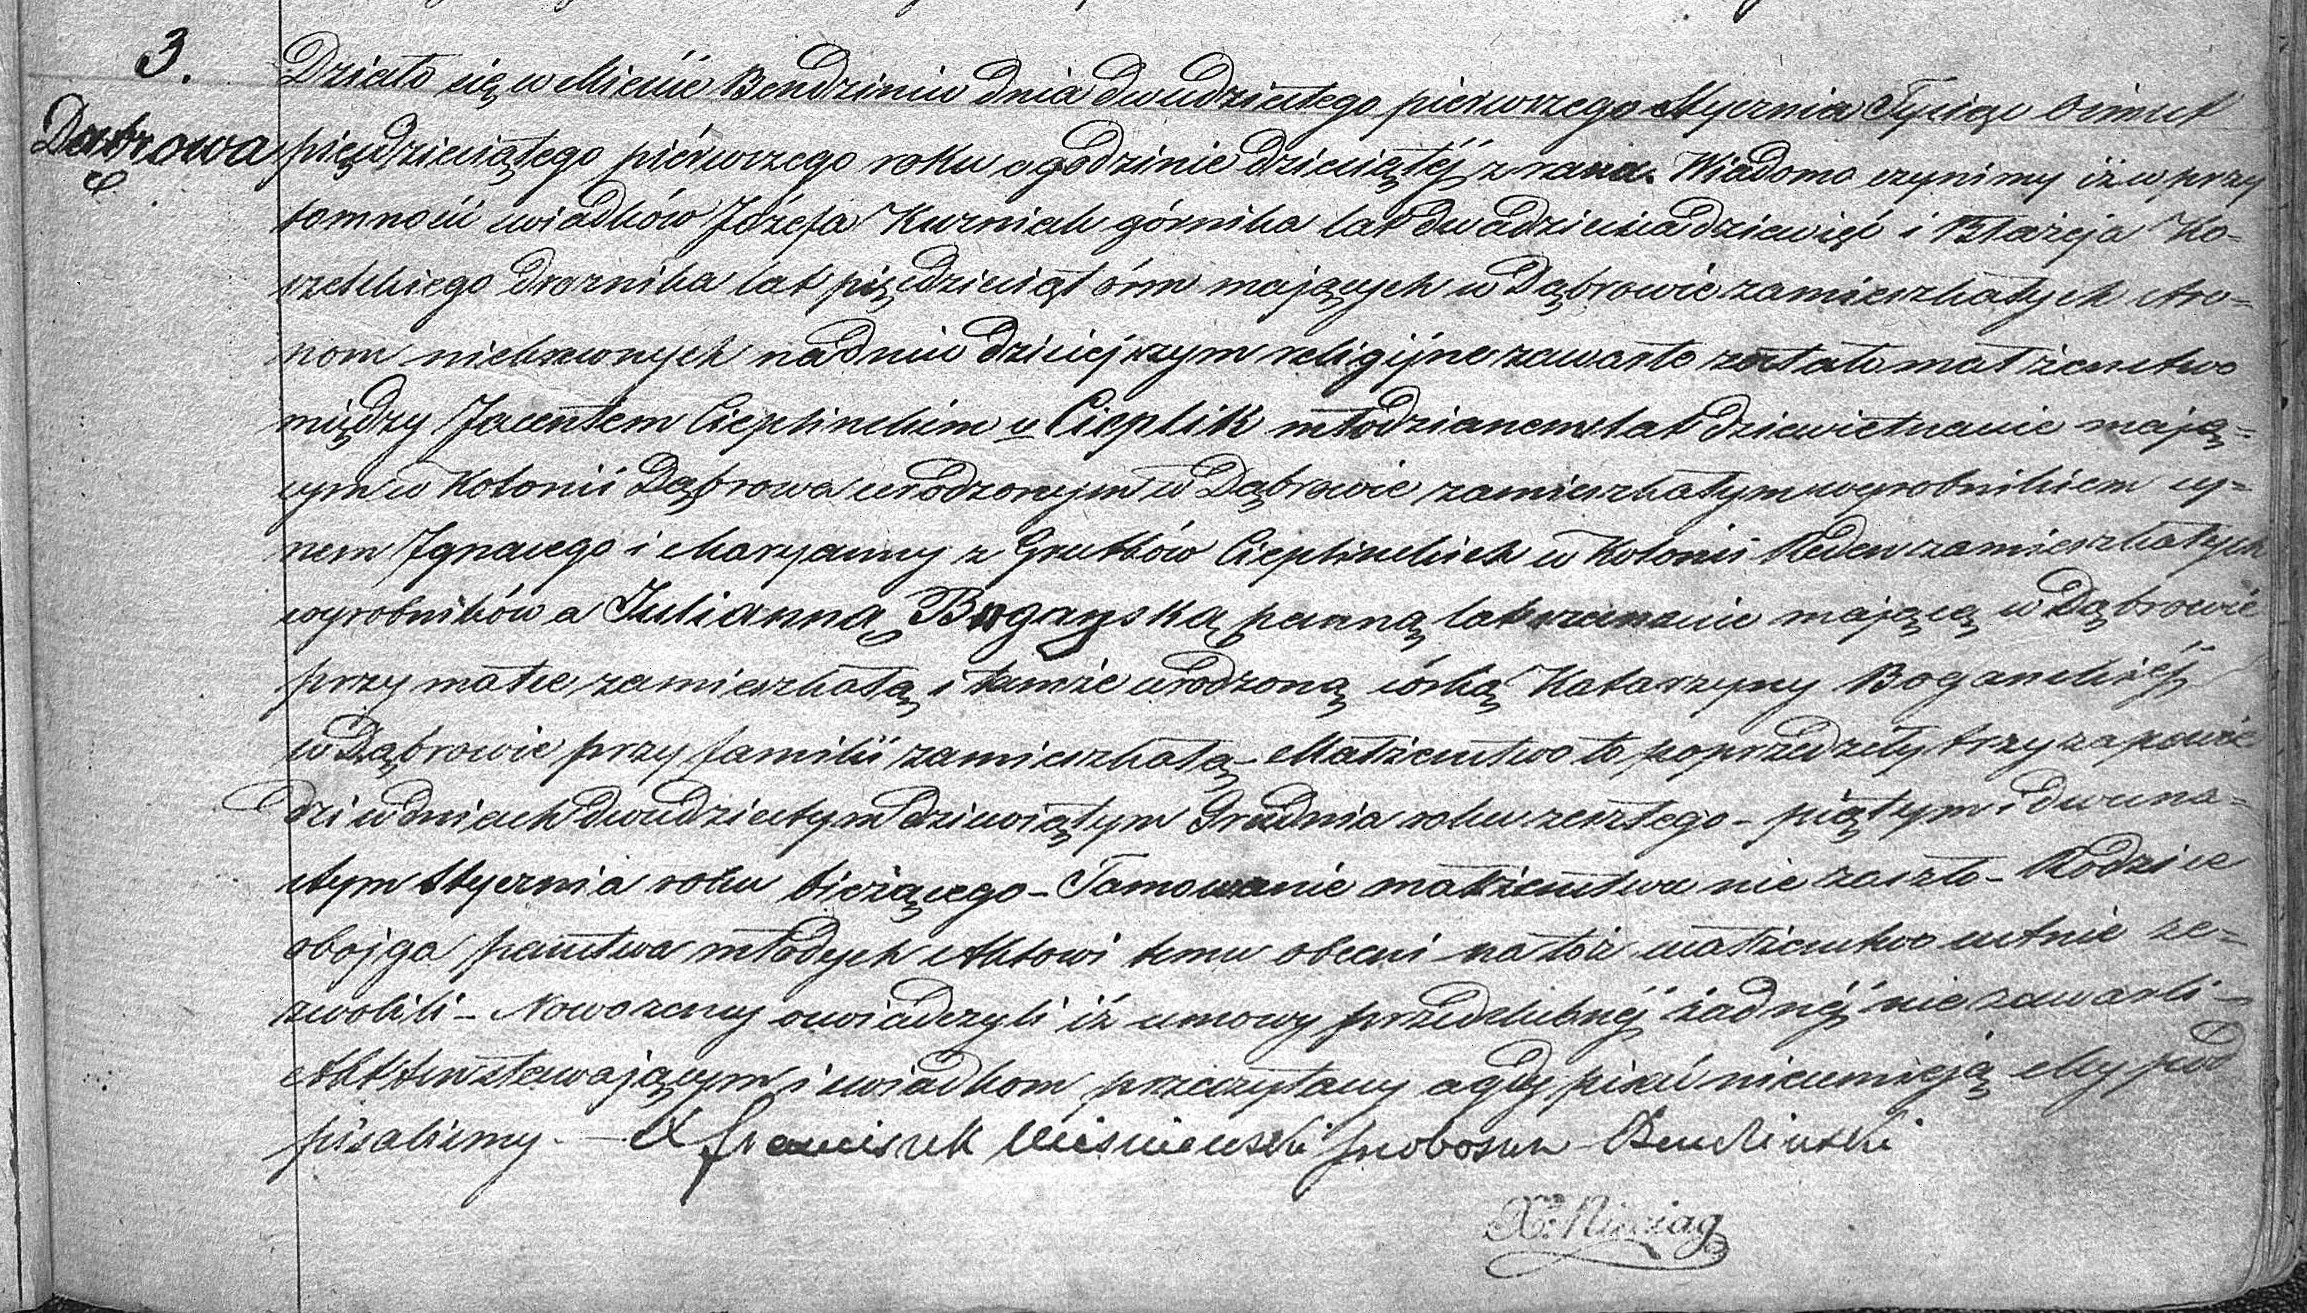 3.
Dąbrowa
Działo się w Mieście Bendzinie dnia dwudziestego pierwszego Stycznia Tysiąc Ośmset
pięćdziesiątego piérwszego roku o godzinie dziesiątéj z rana. Wiadomo czynimy iż w przy
tomności świadków Józefa Kuzniak górnika lat dwadzieścia dziewięć i Błażeja Ko-
rzelskiego drożnika lat pięćdziesiąt ośm mających w Dąbrowie zamieszkałych stro-
nom niekrewnych na dniu dzisiejszym religijne zawarte zostało małżeństwo
między Jacentem Cieplinskim v Cieplik młodzianem lat dziewietnaście mają-
cym w Kolonii Dąbrowa urodzonym w Dąbrowie zamieszkałym wyrobnikiem sy-
nem Ignacego i Maryanny z Grutków Cieplinskich w Kolonii Reden zamieszkałych
wyrobników a Julianną Bogayską panną lat mającą w Dąbrowie
przy matce zamieszkałą i tamże urodzoną córką Katarzyny Boganskiéj
w Dąbrowie przy familii zamieszkałą – Małżeństwo to poprzedziły trzy zapowie
dzi w dniach dwudziestym dziewiątym Grudnia roku zeszłego – piątym i dwuna-
stym Stycznia roku bieżącego – Tamowanie małżeństwa nie zaszło – Rodzice
obojga państwa młodych Aktowi temu obecni na toż małżeństwo ustnie ze-
zwolili – Nowożeńcy oświadczyli iż umowy przedślubnéj żadnéj nie zawarli –
Akt ten stawającym i świadkom przeczytany a gdy pisać nieumieją My pod
pisaliśmy. – X Franciszek Wiśniewski Proboszcz Bendzinski